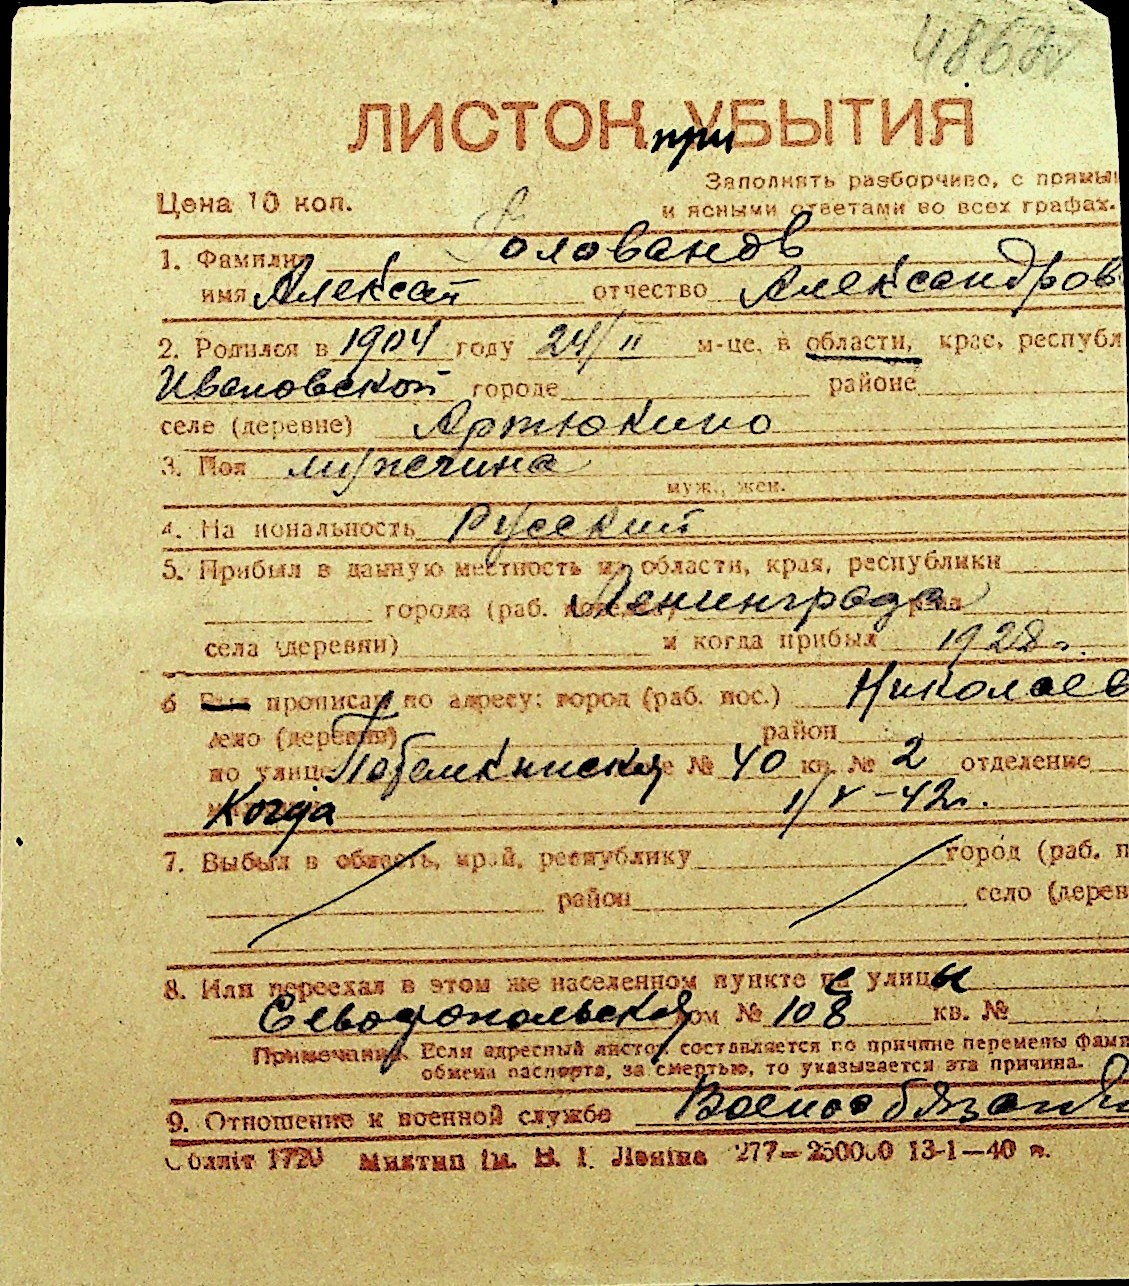 ЛИСТОК при УБЫТИЯ
Заполнять разборчиво, с прямы
Цена 10 коп.
и ясными ответами во всех графах.
1. Фамилия Голованов
имя Алексей отчество Александров
2. Родился в 1904 году 24/II м-це, в области, крае, республ
Ивановской городе районе
селе (деревне) Артюкино
3. Пол мужчина
муж., жен.
4. Национальность Русский
5. Прибыл в данную местность из области, края, республики
города (раб. Ленинграда
села (деревни) и когда прибыл 1928 г.
6 прописан по адресу: город (раб. пос.) Николаев
село (деревня) район
по улице Потемкинская № 40 кв. № 2 отделение
Когда 1/V-42г.
7. Выбыл в область, край, республику город (раб. п
район село (дерев
8. Или переехал в этом же населенном пункте с улицы
Севастопольская дом № 108 кв. №
Примечание. Если адресный листок составляется по причине перемены фами
обмена паспорта, за смертью, то указывается эта причина.
9. Отношение к военной службе
Облліт 1720 Миктип ім. В. І. Леніна 277—250000 13-1—40 р.